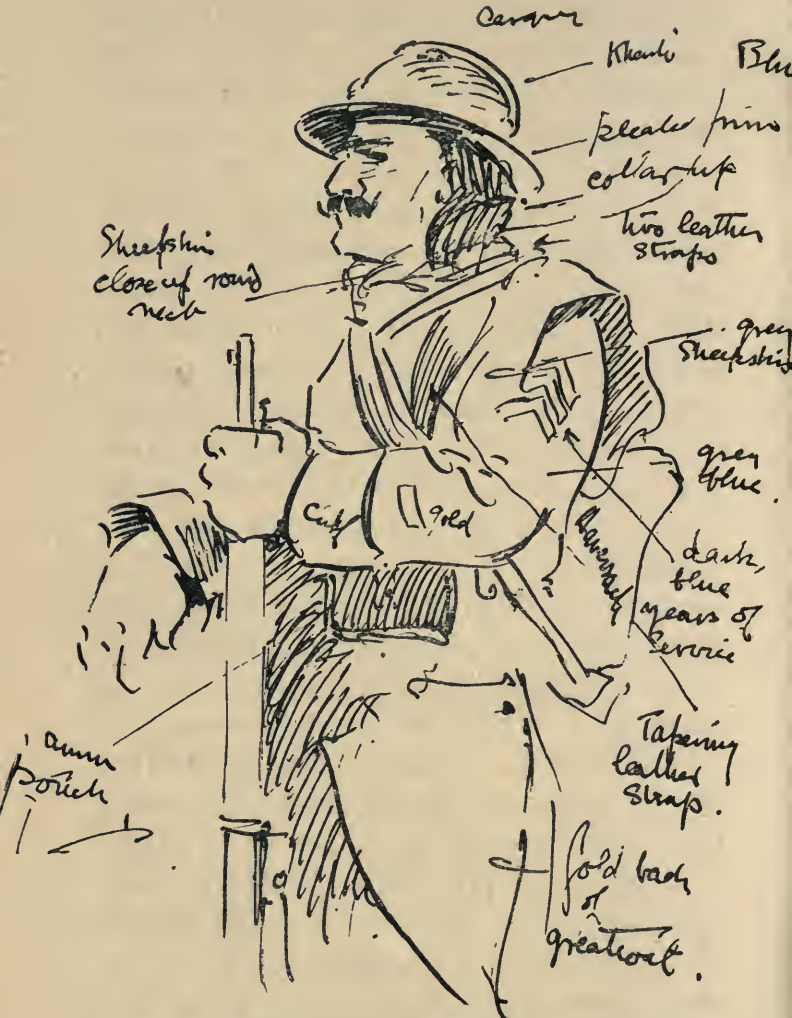 Casque
Khaki
Blu
pleated
collar up
two leather
straps
Sheepskin
close up round
neck
grey
Sheepskin
grey
blue.
Cuff
gold
dark,
blue
years of
Service
Tapering
leather
Strap.
amm
Pouch
fold back
of
greatcoat.